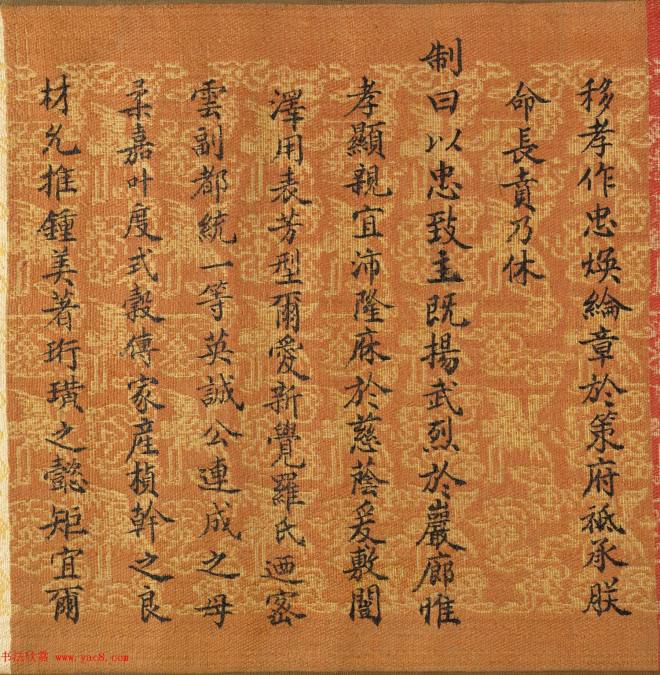 移孝作忠煥綸章於策府祗承朕
命長賁乃休
制曰以忠致主既揚武烈於巖廊惟
孝顯親宜沛隆庥於慈蔭爰敷閫
澤用表芳型爾愛新覺羅氏迺密
雲副都統一等英誠公連成之母
柔嘉叶度式穀傳家產楨幹之良
材允推鍾美著珩璜之懿矩宜爾
书法欣赏 www.yac8.com